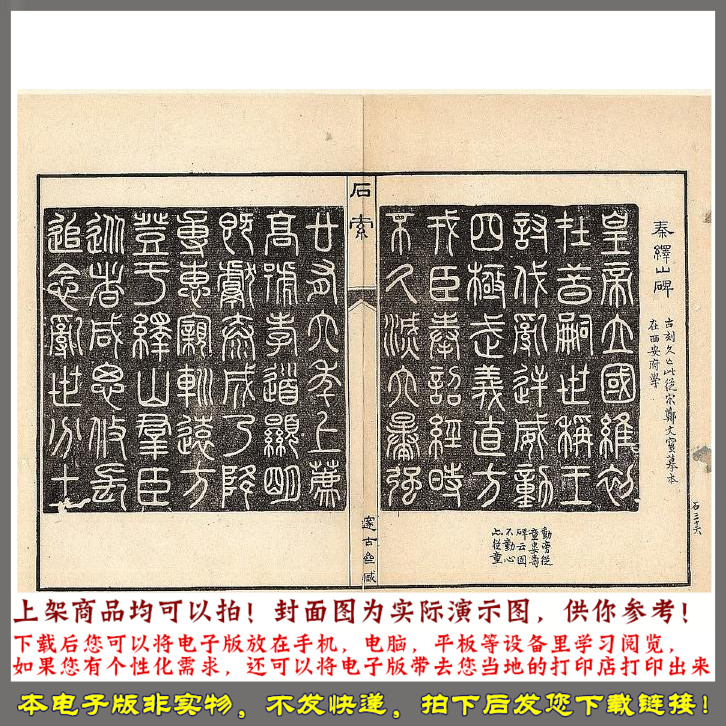 秦繹山碑
古刻久亡此從宋鄭文寶摹本
在西安府學
石三十六
皇帝立國維初
在昔嗣世稱王
討伐亂逆威動
四極武義直方
戎臣奉詔經時
不久滅六暴強
動旁從
童婁壽
碑云固
不動心
此從童
石索
邃古盦臧
廿有六年上薦
高號孝道顯明
既獻泰成乃降
專惠親巡遠方
登于繹山群臣
從者咸思攸長
追念亂世分土
上架商品均可以拍！封面图为实际演示图，供你参考！
下载后您可以将电子版放在手机，电脑，平板等设备里学习阅览，
如果您有个性化需求，还可以将电子版带去您当地的打印店打印出来
本电子版非实物，不发快递，拍下后发您下载链接！